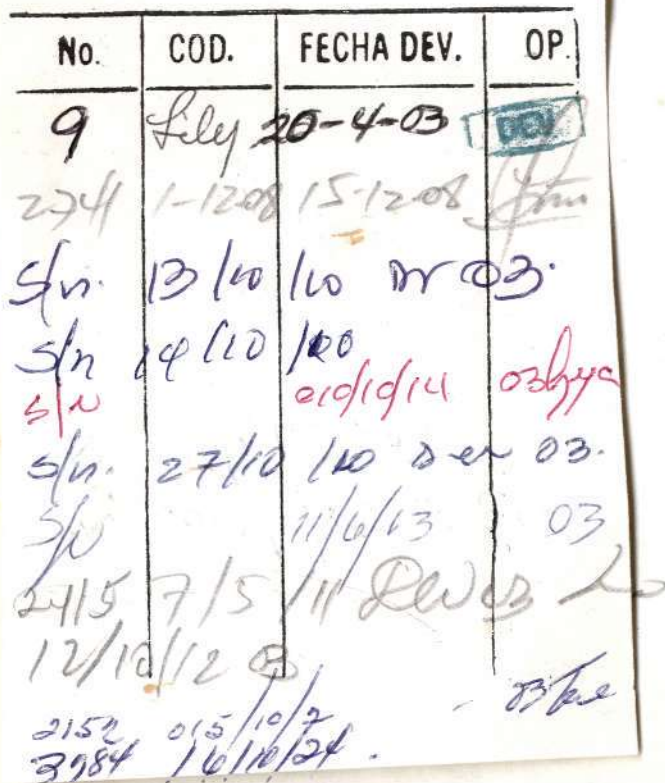 No. COD. FECHA DEV. OP.
9 Lily 20-4-03
2741 1-12-08 15-12-08
S/n. 13/10/10 03.
S/n 14/10/10
S/N 010/10/14 03
S/n. 27/10/10 Dev 03.
S/N 11/6/13 03
2415 7/5/11 Dev 03
12/10/12 03
03
2152 015/10/7
3984 16/10/24.